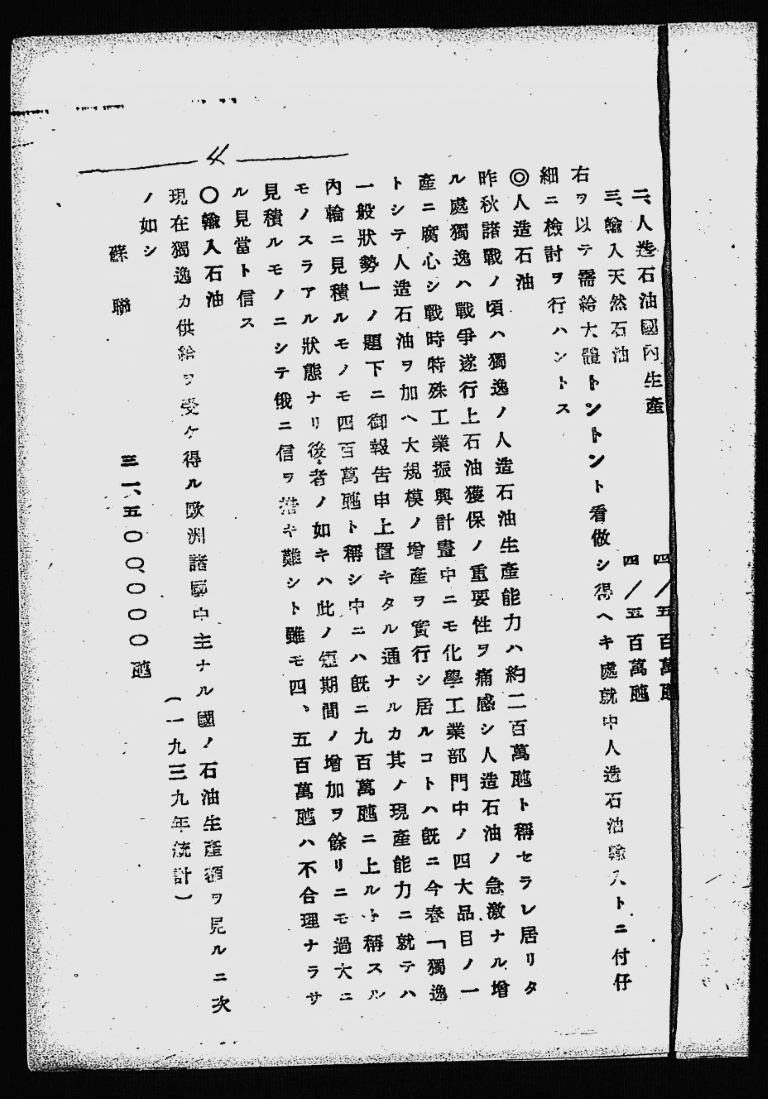 二、人造石油國內生產　四／五百萬瓲
三、輸入天然石油　四／五百萬瓲
右ヲ以テ需給大體トントント看做シ得ヘキ處就中人造石油輸入トニ付仔
細ニ檢討ヲ行ハントス
◎人造石油
昨秋諸戰ノ頃ハ獨逸ノ人造石油生產能力ハ約二百萬瓲ト稱セラレ居リタ
ル處獨逸ハ戰爭遂行上石油獲保ノ重要性ヲ痛感シ人造石油ノ急激ナル增
產ニ腐心シ戰時特殊工業振興計畫中ニモ化學工業部門中ノ四大品目ノ一
トシテ人造石油ヲ加ヘ大規模ノ增產ヲ實行シ居ルコトハ旣ニ今春「獨逸
一般狀勢」ノ題下ニ御報告申上置キタル通ナルカ其ノ現產能力ニ就テハ
內輪ニ見積ルモノモ四百萬瓲ト稱シ中ニハ旣ニ九百萬瓲ニ上ルト稱スル
モノスラアル狀態ナリ後者ノ如キハ此ノ短期間ノ增加ヲ餘リニモ過大ニ
見積ルモノニシテ俄ニ信ヲ措キ難シト雖モ四、五百萬瓲ハ不合理ナラサ
ル見當ト信ス
〇輸入石油
現在獨逸カ供給ヲ受ケ得ル歐洲諸國中主ナル國ノ石油生產額ヲ見ルニ次
ノ如シ　（一九三九年統計）
蘇聯　三一、五〇〇、〇〇〇瓲
4